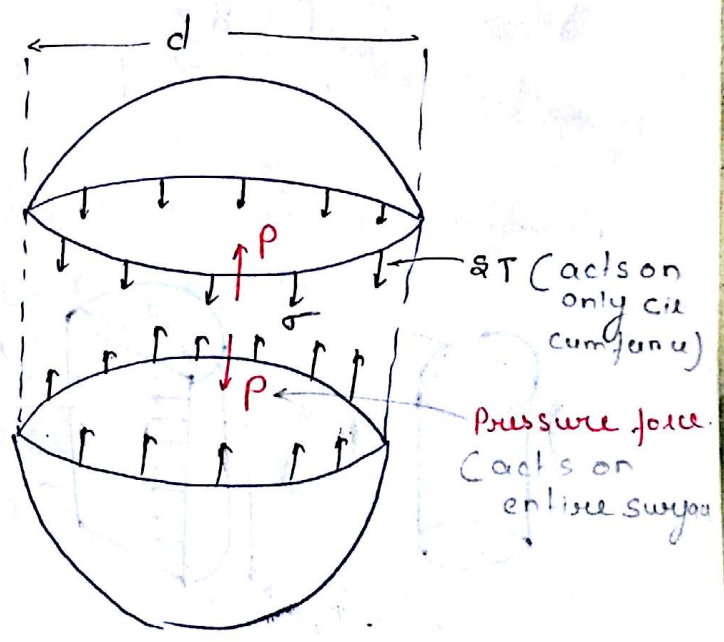 d
P
ST (acts on
only cir
cumference)
σ
P
Pressure force.
(acts on
entire surfac